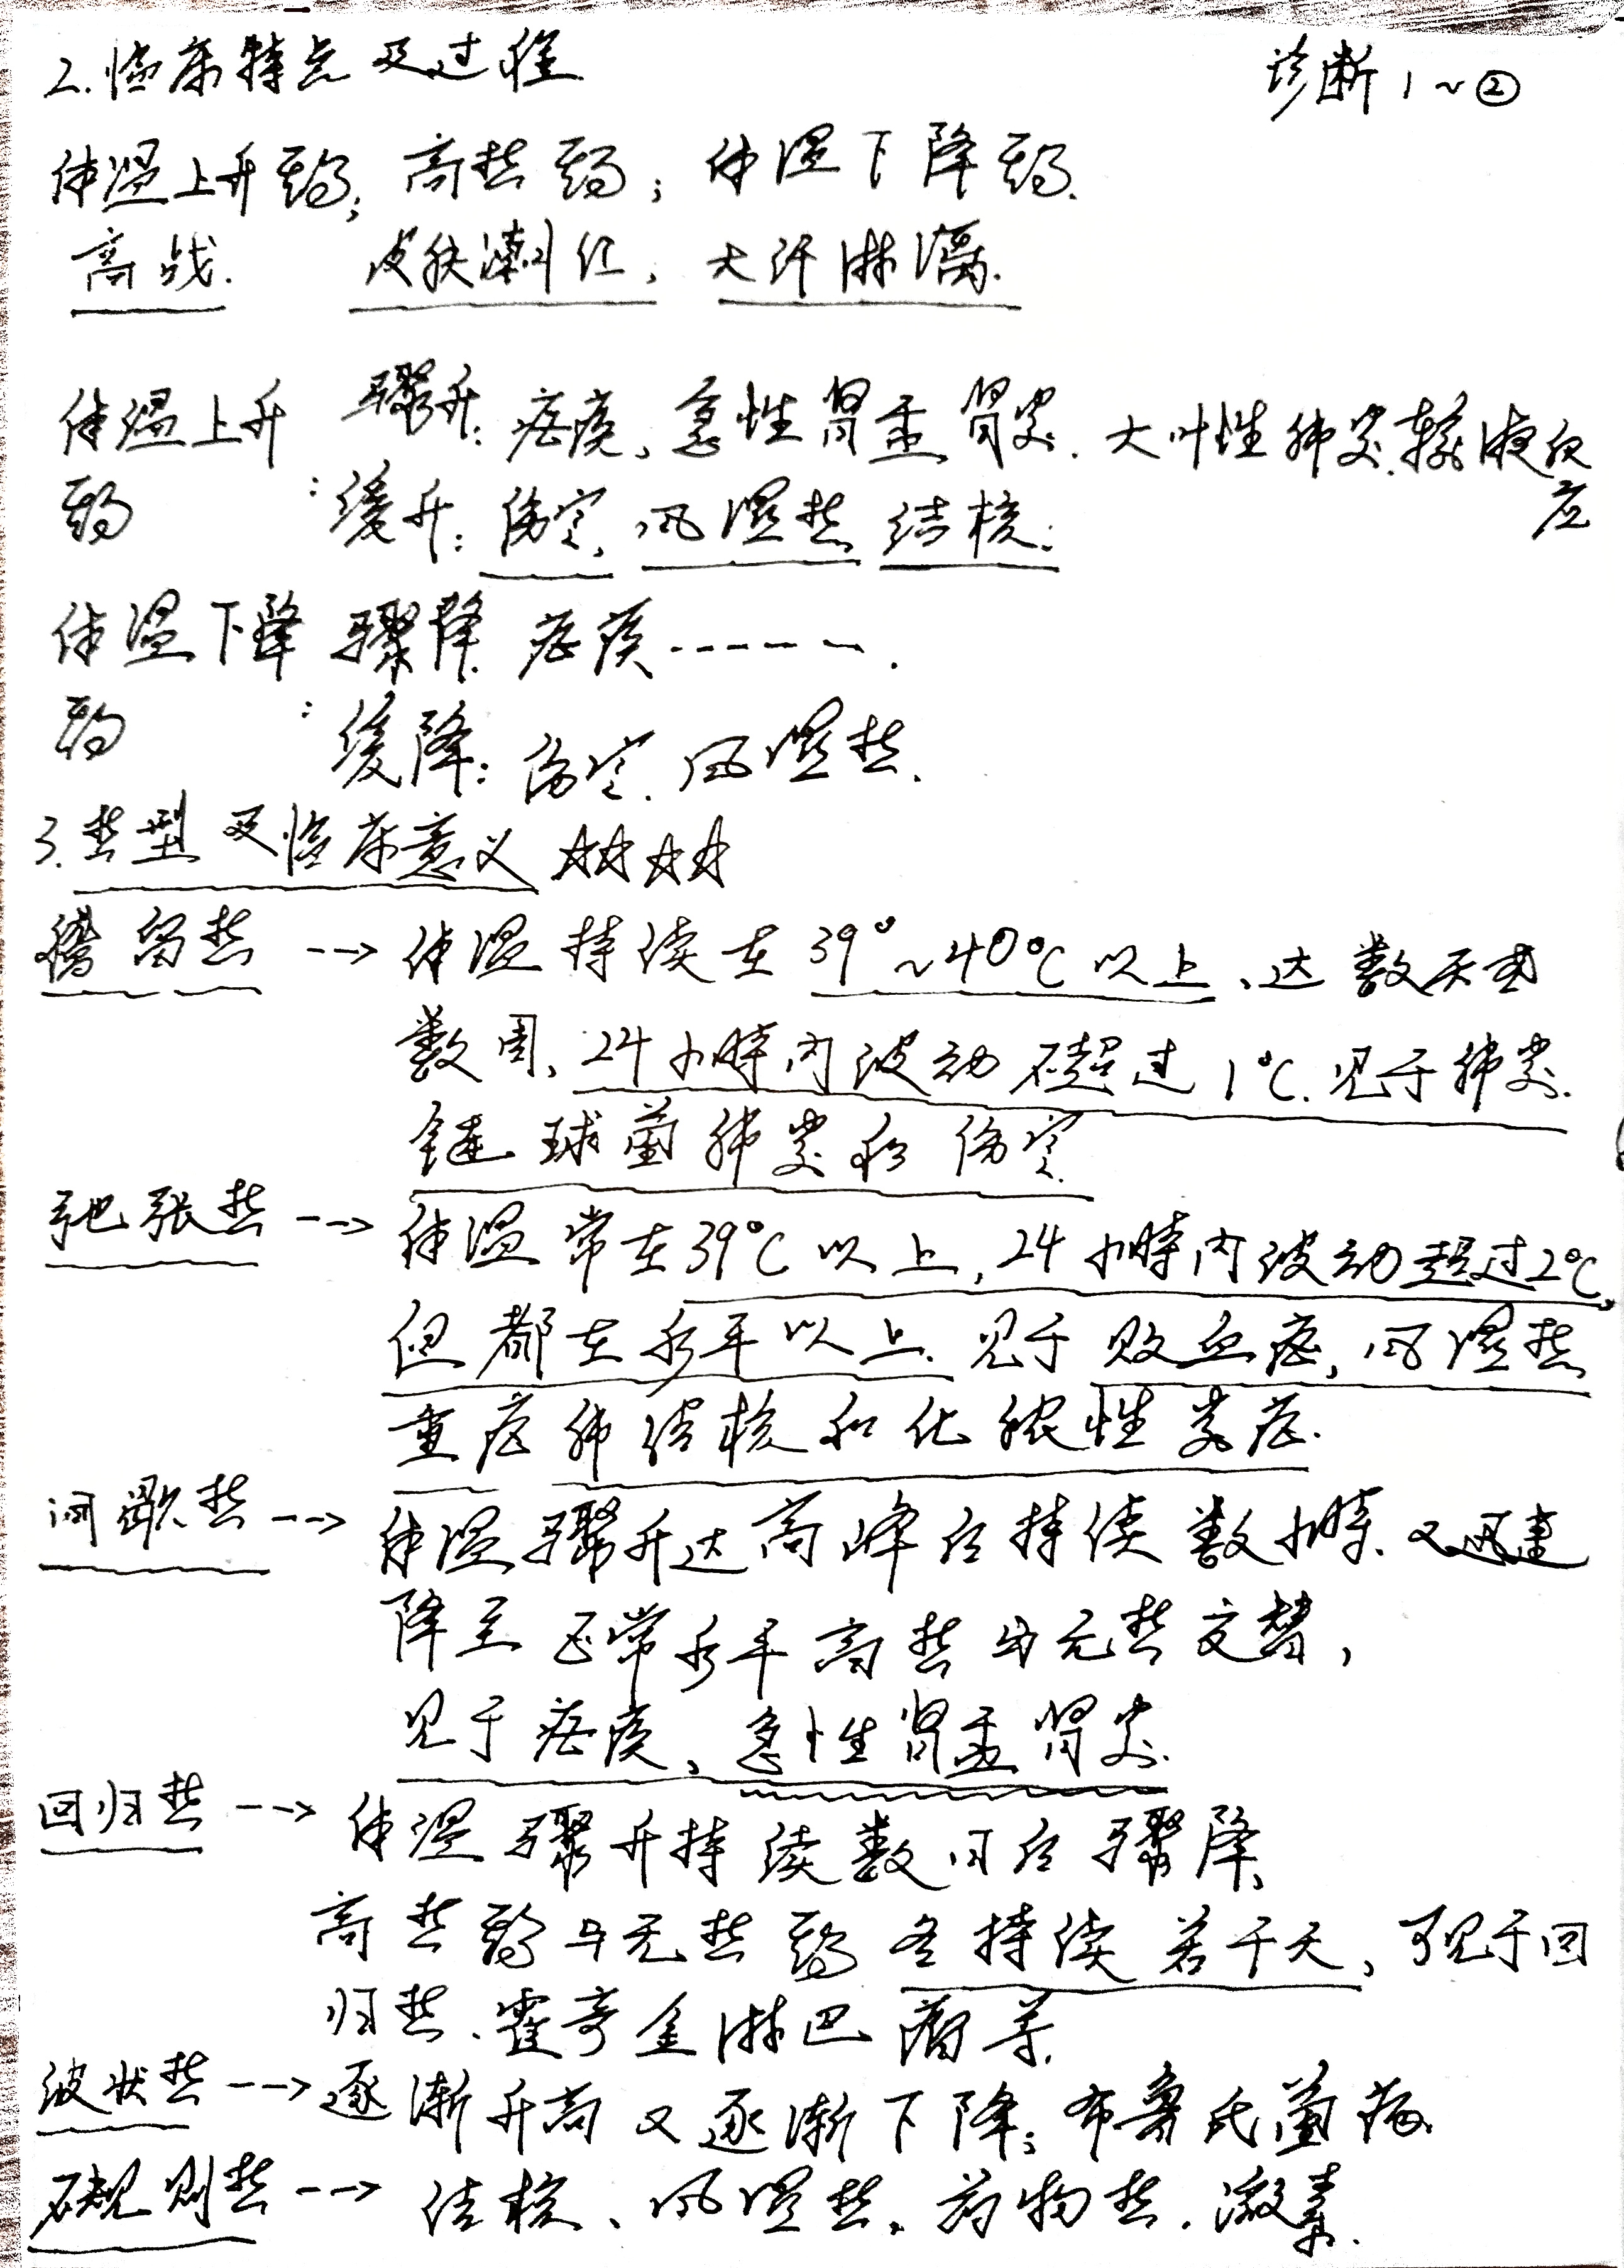 2.临床特点及过程
诊断1~②
体温上升期;高热期;体温下降期.
高战. 皮肤潮红、大汗淋漓.
体温上升期: 骤升:疟疾、急性肾盂肾炎.大叶性肺炎.输液反应
缓升:伤寒、风湿热 结核.
体温下降期: 骤降.疟疾------.
缓降:伤寒.风湿热.
3.热型及临床意义 ☆☆☆☆
稽留热 --→ 体温持续在39°~40℃以上、达数天或
数周、24小時内波动不超过1℃.见于肺炎.
链球菌肺炎和伤寒.
弛张热 --→ 体温常在39℃以上,24小時内波动超过2℃,
但都在水平以上.见于败血症,风湿热
重症肺结核和化脓性炎症.
间歇热 --→ 体温骤升达高峰后持续数小時.又迅速
降至正常水平高热与无热交替,
见于疟疾、急性肾盂肾炎.
回归热 --→ 体温骤升持续数日后骤降、
高热期与无热期各持续若干天,可见于回
归热、霍奇金淋巴瘤等.
波状热 --→ 逐渐升高又逐渐下降;布鲁氏菌病
不规则热 --→ 结核、风湿热、药物热.激素.